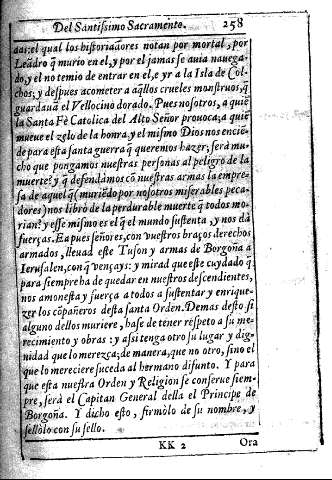 Del Santissimo Sacramento. 258
das; el qual los historiadores notan por mortal, por
Leãdro q̃ murio en el, y por el jamas se auia nauega-
do, y el no temio de entrar en el, e yr a la Isla de Col-
chos; y despues acometer a aq̃llos crueles monstruos, q̃
guardauã el Vellocino dorado. Pues nosotros, a quiẽ
la Santa Fè Catolica del Alto Señor prouoca; a quiẽ
mueue el zelo de la honra, y el mismo Dios nos enciẽ-
de para esta santa guerra q̃ queremos hazer; serà mu-
cho que pongamos nuestras personas al peligro de la
muerte? y q̃ defendámos cõ nuestras armas la empre-
sa de aquel q̃ (muriẽdo por nosotros miserables peca-
dores) nos librò de la perdurable muerte q̃ todos mo-
rian? y esse mismo es el q̃ el mundo sustenta, y nos dà
fuerças. Ea pues señores, con vuestros braços derechos
armados, lleuad este Tuson y armas de Borgoña a
Ierusalen, con q̃ vençays: y mirad que este cuydado q̃
para siempre ha de quedar en nuestros descendientes,
nos amonesta y fuerça a todos a sustentar y enrique-
zer los cõpañeros desta santa Orden. Demas desto si
alguno dellos muriere, hase de tener respeto a su me-
recimiento y obras: y assi tenga otro su lugar y dig-
nidad que lo merezca; de manera, que no otro, sino el
que lo mereciere suceda al hermano difunto. Y para
que esta nuestra Orden y Religion se conserue siem-
pre, serà el Capitan General della el Principe de
Borgoña. Y dicho esto, firmòlo de su nombre, y
sellòlo con su sello.
KK 2 Ora